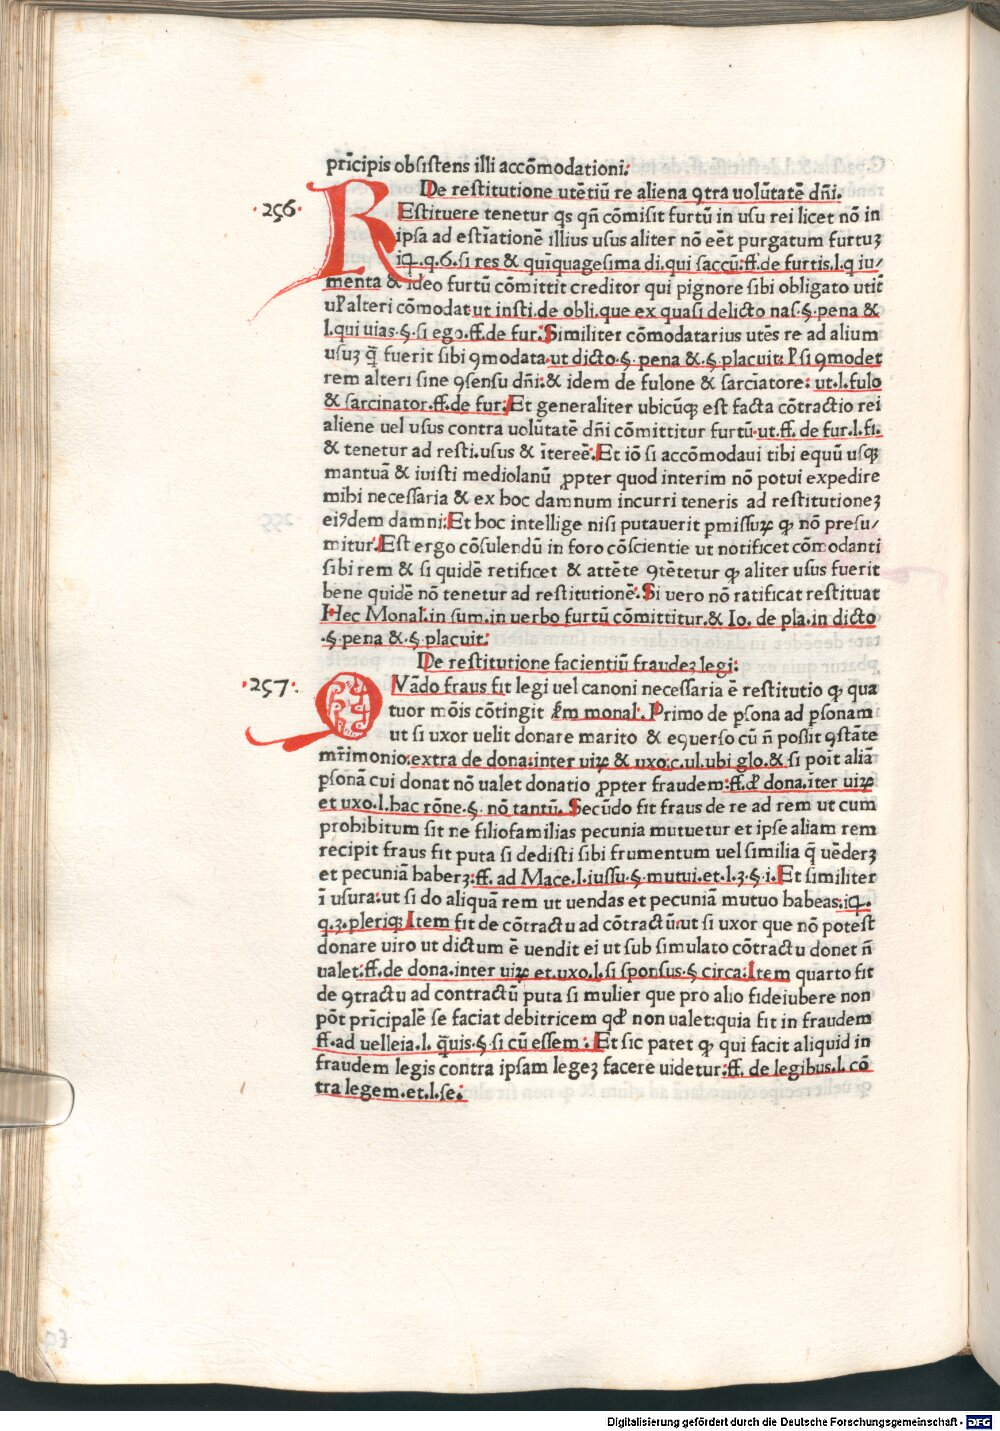 prīcipis obsistens illi accōmodationi:
De restitutione utētiū re aliena ꝯtra uolūtatē dn̄i.
·256·
REstituere tenetur qs qn̄ cōmisit furtū in usu rei licet nō in
ipsa ad estīationē illius usus aliter nō eēt purgatum furtuꝫ
iq̄.q.6.si res & quīquagesima di.qui saccū:ff.de furtis.l.q iu/
menta & ideo furtū cōmittit creditor qui pignore sibi obligato utit̄
ul̛ alteri cōmodat ut insti.de obli.que ex quasi delicto nas.§.pena &
l.qui uias.§.si ego.ff.de fur.Similiter cōmodatarius utēs re ad alium
usuꝫ q̄ fuerit sibi ꝯmodata.ut dicto.§.pena &.§.placuit: l̛ si ꝯmodet
rem alteri sine ꝯsensu dn̄i:& idem de fulone & sarciatore: ut.l.fulo
& sarcinator.ff.de fur.Et generaliter ubicūqꝫ est facta cōtractio rei
aliene uel usus contra uolūtatē dn̄i cōmittitur furtū.ut.ff.de fur.l.fi.
& tenetur ad resti.usus & ītereē.Et iō si accōmodaui tibi equū usqꝫ
mantuā & iuisti mediolanū ꝓpter quod interim nō potui expedire
mihi necessaria & ex hoc damnum incurri teneris ad restitutioneꝫ
eiꝰdem damni:Et hoc intellige nisi putauerit pmissuꝝ qꝫ nō presu/
mitur.Est ergo cōsulendū in foro cōscientie ut notificet cōmodanti
sibi rem & si quidē retificet & attēte ꝯtētetur qꝫ aliter usus fuerit
bene quidē nō tenetur ad restitutionē.Si uero nō ratificat restituat
Hec Monal.in sum.in uerbo furtū cōmittitur.& Io. de pla.in dicto
.§ pena & §.placuit:
De restitutione facientiū fraudeꝫ legi:
·257·
QVādo fraus fit legi uel canoni necessaria ē restitutio qꝫ qua
tuor mōis cōtingit ẜm monal. Primo de psona ad psonam
ut si uxor uelit donare marito & eꝯuerso cū n̄ possit ꝯstāte
mr̄imonio:extra de dona:inter uiꝝ & uxo:c.ul.ubi glo.& si poīt aliā
psonā cui donat nō ualet donatio ꝓpter fraudem:ff.đ dona.īter uiꝝ
et uxo.l.hac rōne.§. nō tantū. Secūdo fit fraus de re ad rem ut cum
prohibitum sit ne filiofamilias pecunia mutuetur et ipse aliam rem
recipit fraus fit puta si dedisti sibi frumentum uel similia q̄ uēderꝫ
et pecuniā haberꝫ:ff. ad Mace.l.iussu.§.mutui.et.l.3.§.i.Et similiter
ī usura:ut si do aliquā rem ut uendas et pecuniā mutuo habeas:iq̄.
q.3.pleriqꝫ Item fit de cōtractu ad cōtractū:ut si uxor que nō potest
donare uiro ut dictum ē uendit ei ut sub simulato cōtractu donet n̄
ualet:ff.de dona.inter uiꝝ et.uxo.l.si sponsus.§ circa:Item quarto fit
de ꝯtractu ad contractū puta si mulier que pro alio fideiubere non
pōt prīcipalē se faciat debitricem qđ non ualet:quia fit in fraudem
ff.ad uelleia.l. q̄uis.§.si cū essem:.Et sic patet qꝫ qui facit aliquid in
fraudem legis contra ipsam legeꝫ facere uidetur:ff. de legibus.l.cō
tra legem.et.l.se:
Digitalisierung gefördert durch die Deutsche Forschungsgemeinschaft - DFG